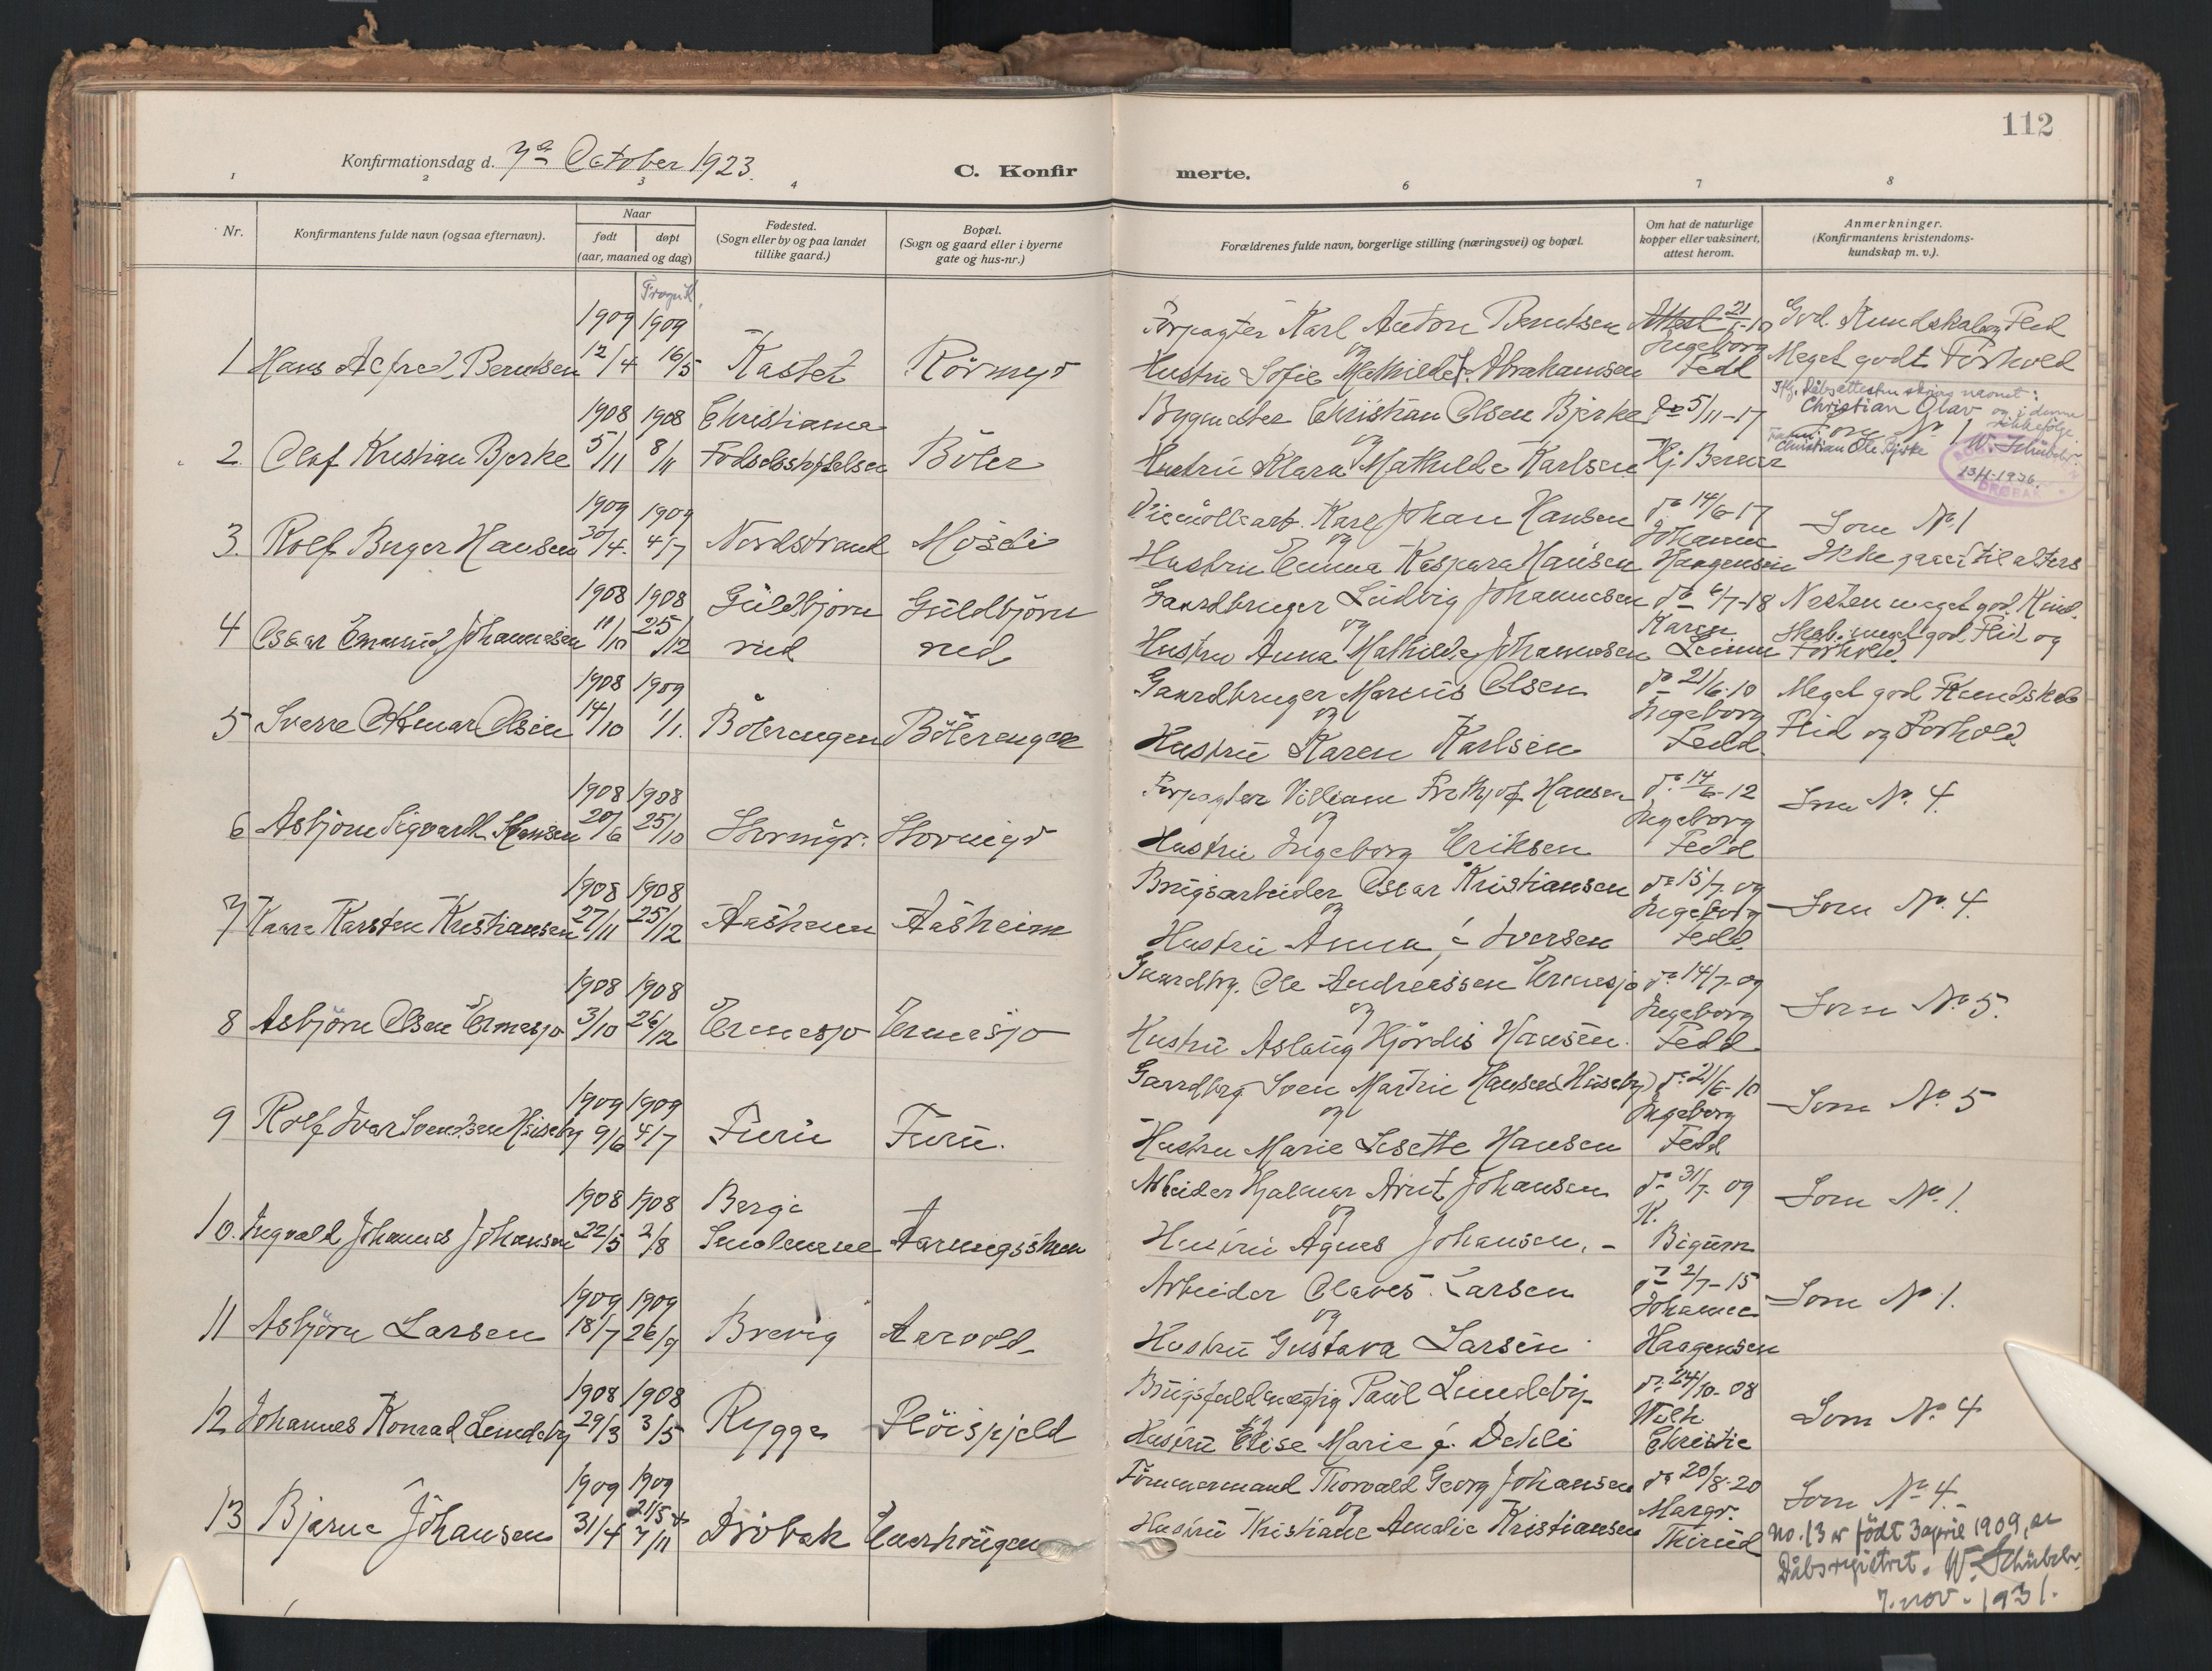 112
Konfirmationsdag d. 7de October 1923.
C. Konfirmerte.
1 2 3 4 6 7 8
Nr.
Konfirmantens fulde navn (ogsaa efternavn).
Naar
født
døpt
(aar, maaned og dag)
Fødested.
(Sogn eller by og paa landet
tillike gaard.)
Bopæl.
(Sogn og gaard eller i byerne
gate og hus-nr.)
Forældrenes fulde navn, borgerlige stilling (næringsvei) og bopæl.
Om hat de naturlige
kopper eller vaksinert,
attest herom.
Anmerkninger.
(Konfirmantens kristendoms-
kundskap m. v.).
1909 1909 Forpagter Karl Anton Berntsen Attest 21/6-10 God. Kundskab og Flid
og Ingeborg
1 Hans Alfred Berntsen 12/4 16/5 Kastet Hustru Sofie Mathilde Abrahamsen Fedd Meget godt Forhold
1908 1908 Christiania Bygmester Christian Olsen Bjerke do 5/11-17 Iflg. Dåbsattesten navnet:
Christian Olav og i denne
og Som No 1
2. Olaf Kristian Bjerke 5/11 8/11 Fødselsstiftelsen Böler Hustru Klara Mathilde Karlsen Hj. Berner Christian Ole Bjerke
W. Schübeler
13/11-1936.
DRØBAK
1909 1909 Karl Johan Hansen do 14/6-17 Som No 1
og Johanne
3. Rolf Birger Hansen 30/4. 4/7 Nordstrand Hustru Emma Kaspara Hansen Haagensen Ikke gaaet til alters
1908 1908 Güldbjörn Güldbjörn Gaardbruger Ludvig Johannesen do 6/7-18 Nesten meget god. Kund-
og Karen skab. meget god. Flid og
4 Oscar Emanuel Johannesen 11/10 25/12 rud rud Hustru Anna Mathilde Johannesen Forhold.
1908 1909 Gaardbruger Marius Olsen do 21/6-10 Meget god Kundskab
og Ingeborg
5 Sverre Otmar Olsen 14/10 1/1. Bölerengen Bölerengen Hustru Karen Karlsen Fedd. Flid og Forhold
1908 1908 Forpagter Villiam Fritjof Hansen do 14/6-12 Som No. 4.
og Ingeborg
6 Asbjörn Sigvardt Hansen 20/6 25/10 Hustru Ingeborg Eriksen Fedd
1908 1908 Brugsarbeider Oscar Kristiansen do 15/7-09
og Ingeborg Som No. 4.
7 Kaare Karsten Kristiansen 27/11 25/12 Aasheim Aasheim Hustru Anna, f. Iversen Fedd.
1908 1908 Gaardbrg. Ole Andreassen Ermesjø do 14/7-09
og Ingeborg Som No. 5.
8 Asbjörn Olsen Ermesjø 3/10 26/12 Ermesjø Ermesjø Hustru Aslaug Hjördis Hansen. Fedd
1909 1909 Gaardbrg Sven Martin Hansen (Huseby) do 21/6-10
og Ingeborg Som No. 5
9 Rolf Ivar Svendsen Huseby 9/6 4/7 Furu Furu. Hustru Marie Lisette Hansen Fedd
1908 1908 Berge Arbeider Hjalmar Arnt Johansen do 31/7-09 Som No. 1.
og K.
10. Ingvald Johannes Johansen 22/5 2/8 Smolenene Hustru Agnes Johansen. Bigum
1909 1909 Arbeider Olaves Larsen do 2/7-15
og Johanne Som No. 1.
11 Asbjörn Larsen 18/7 26/9 Brevig Aarvold Hustru Gustava Larsen Haagensen
1908 1908 Brugsfuldmegtig Paul Lundeby do 24/10-08
og Wilh. Som No. 4
12 Johannes Konrad Lundeby 29/3 3/5 Rygge Flöispjeld Hustru Elise Marie f. Dehli Christie
1909 1909 Tömmermand Thorvald Georg Johansen do 20/8-20
21/5 og Margr. Som No. 4.
13 Bjarne Johansen 31/4 7/11 Dröbak Hustru Kristiane Amalie Kristiansen
No. 13 er født 3 april 1909, se
Dåbsregistret. W. Schübeler.
7. nov. 1931.